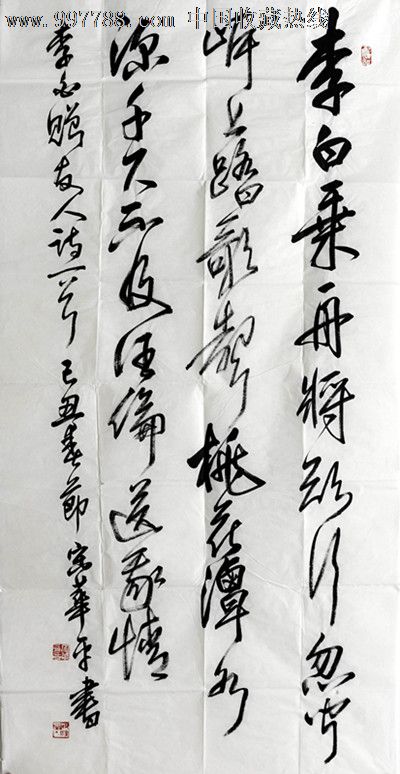 www.997788.com 中国收藏热线
李白乘舟將欲行忽闻
岸上踏歌聲桃花潭水
深千尺不及汪倫送我情
李白赠友人诗一首 己丑春節 華平書